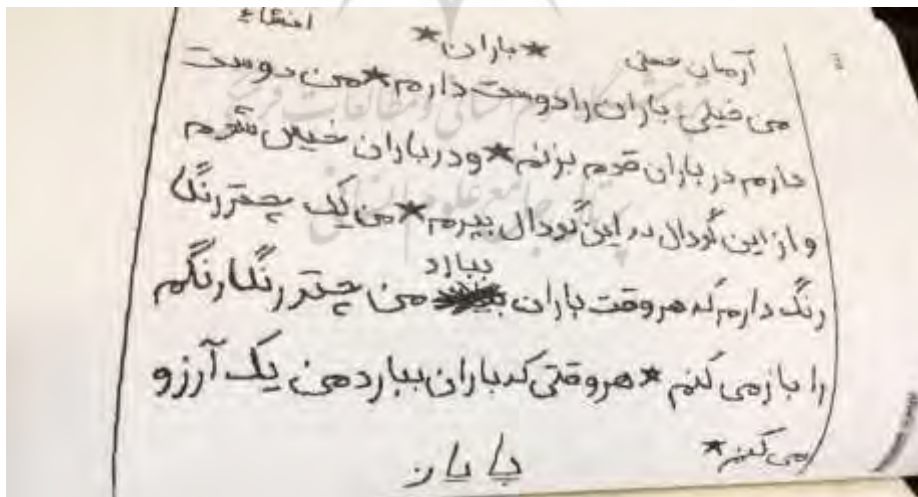 انشاء
*باران*
آرمان
من خیلی باران را دوست دارم * من دوست
دارم در باران قدم بزنم * و در باران خیس شوم
و از این گودال در این گودال بپرم * من یک چتر رنگا
رنگ دارم که هر وقت باران ببارد من چتر رنگارنگم
را باز می کنم * هر وقتی که باران ببارد من یک آرزو
می کنم *
پایان